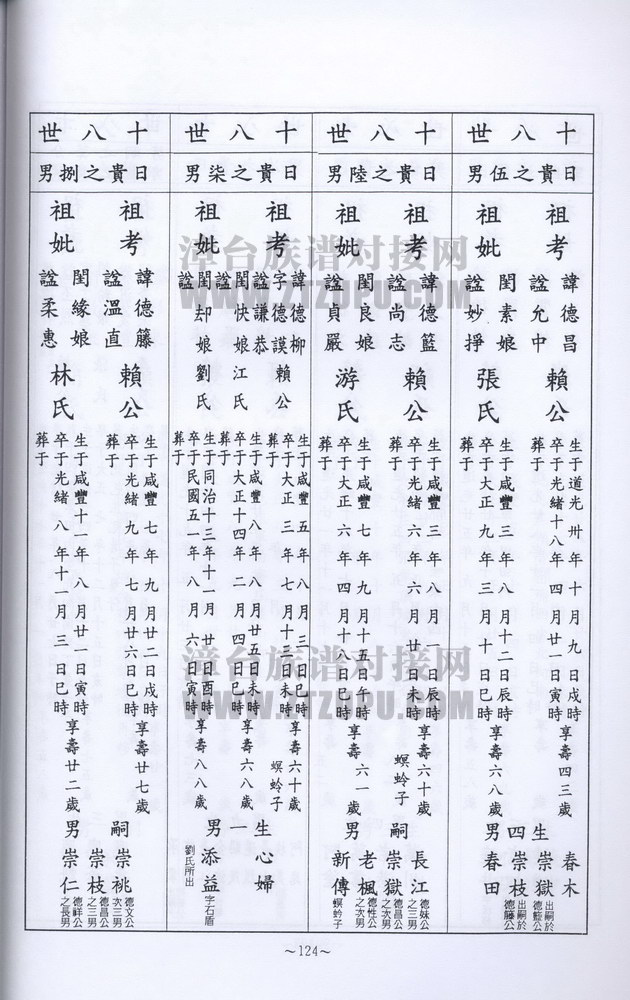 十八世
日貴之伍男
祖考
諱德昌
諡允中
賴公
生于道光卅年十月九日戌時
卒于光緒十八年四月廿一日寅時
享壽四三歲
葬于
祖妣
閨素娘
諡妙掙
張氏
生于咸豐三年八月十二日辰時
卒于大正九年三月十日巳時
享壽六八歲
葬于
生四男
春木
崇獄 出嗣於德籃公
崇枝 出嗣於德籐公
春田
十八世
日貴之陸男
祖考
諱德籃
諡尚志
賴公
生于咸豐三年八月日辰時
卒于光緒六年六月廿日未時
享壽六十歲
螟蛉子
葬于
祖妣
閨良娘
諡貞嚴
游氏
生于咸豐七年九月十五日午時
卒于大正六年四月十八日巳時
享壽六一歲
葬于
嗣男
長江 德妹公之三男
崇獄 德昌公之三男
老楓 德性公之次男
新傳 螟蛉子
十八世
日貴之柒男
祖考
諱德柳
字德謨
諡謙恭
賴公
生于咸豐五年八月三日巳時
卒于大正三年七月十三日未時
享壽六十歲
螟蛉子
葬于
祖妣
閨快娘
諡
江氏
生于咸豐八年八月廿五日未時
卒于大正十四年二月四日巳時
享壽六八歲
葬于
閨却娘
諡
劉氏
生于同治十三年十一月廿日酉時
卒于民國五一年八月六日寅時
享壽八八歲
葬于
生一男
心婦
添益 字石盾
劉氏所出
十八世
日貴之捌男
祖考
諱德籐
諡溫直
賴公
生于咸豐七年九月廿二日戌時
卒于光緒九年七月廿六日巳時
享壽廿七歲
葬于
祖妣
閨緣娘
諡柔惠
林氏
生于咸豐十一年八月廿一日寅時
卒于光緒八年十一月三日巳時
享壽廿二歲
葬于
嗣男
崇祧 德文公次三男
崇枝 德昌公之三男
崇仁 德祥公之長男
~124~
漳台族谱对接网
WWW.ZTZUPU.COM
漳台族谱对接网
WWW.ZTZUPU.COM